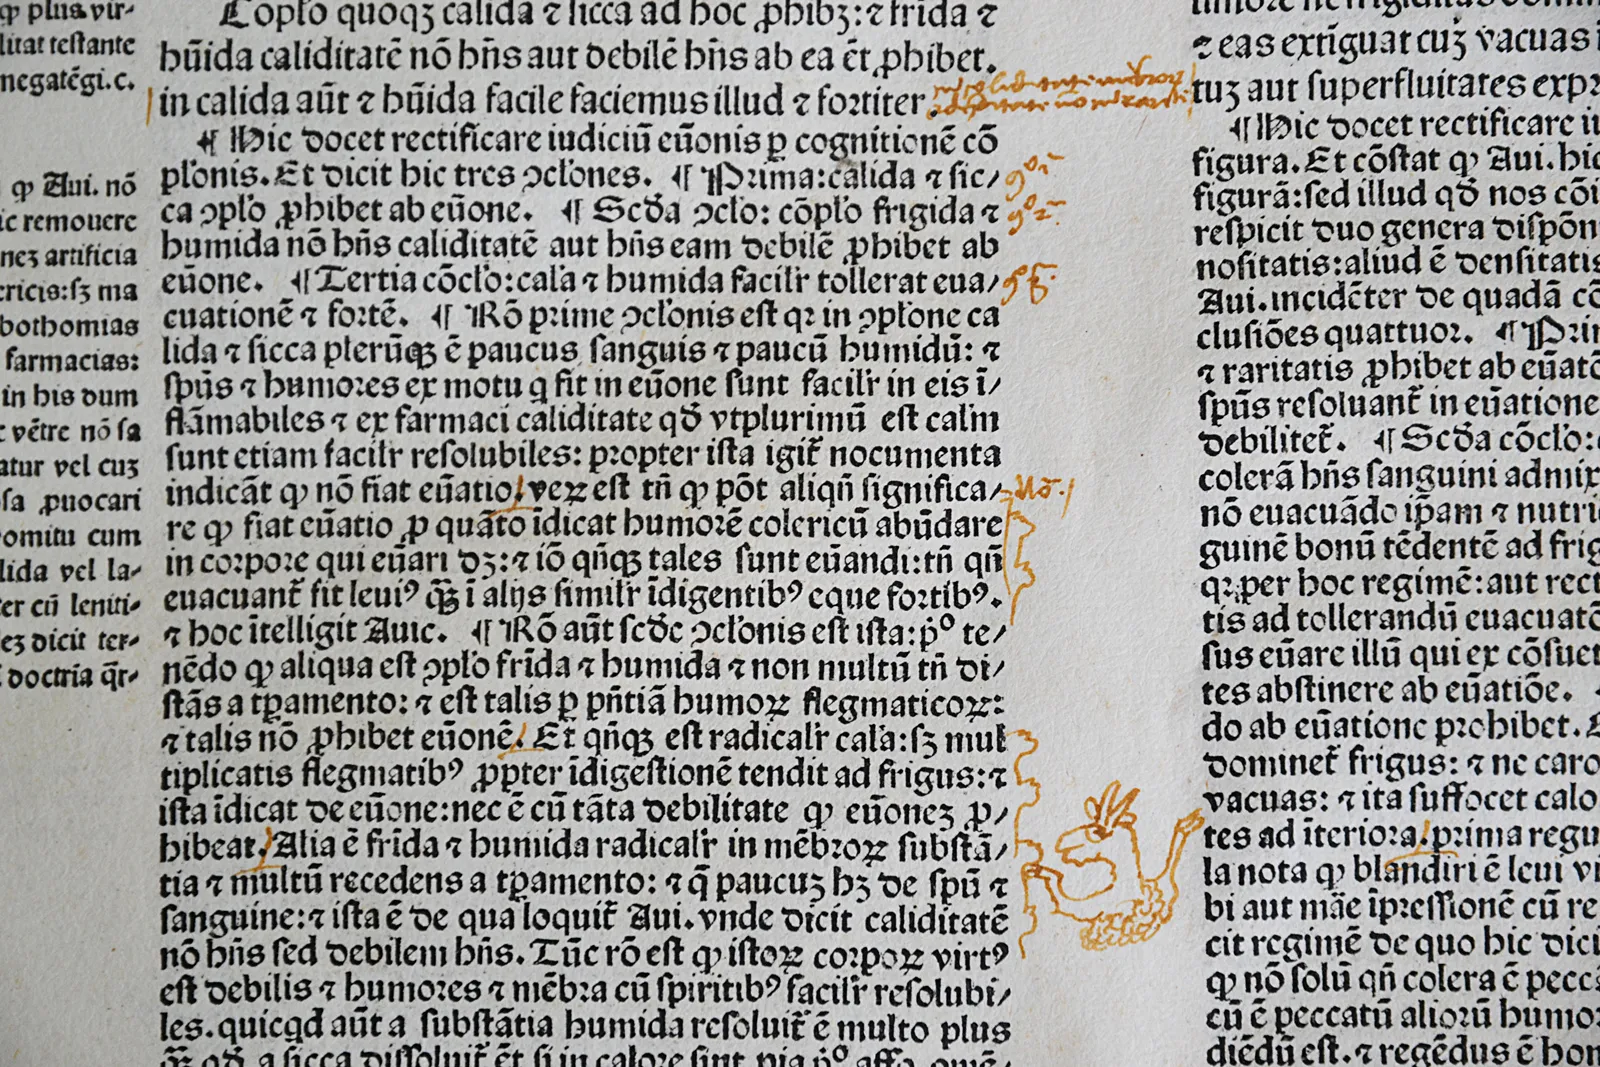 ꝙ plus vir-
litat testante
negatēgi.c.
ꝙ Aui. nō
ic remouere
nez artificia
ericis:sꝫ ma
bothomias
farmacias:
in his dum
vētre nō sa
atur vel cuz
sa ꝓuocari
omitu cum
lida vel la-
er cū leniti-
ez dicit ter-
doctria q̄r-
Cōplo quoqꝫ calida ⁊ sicca ad hoc ꝓhibꝫ:⁊ frida ⁊
hūida caliditatē nō hn̄s aut debilē hn̄s ab ea ēt ꝓhibet.
in calida aūt ⁊ hūida facile faciemus illud ⁊ fortiter.
¶ Hic docet rectificare iudiciū eūonis ꝑ cognitionē cō
plonis. Et dicit hic tres ꝯclones. ¶ Prima:calida ⁊ sic/
ca ꝯplo ꝓhibet ab eūone. ¶ Scd̄a ꝯclo: cōplo frigida ⁊
humida nō hn̄s caliditatē aut hn̄s eam debilē ꝓhibet ab
eūone. ¶ Tertia cōclo:cala ⁊ humida facilr tollerat eua/
cuationē ⁊ fortē. ¶ Rō prime ꝯclonis est qꝛ in ꝯplone ca
lida ⁊ sicca plerūqꝫ ē paucus sanguis ⁊ paucū humidū: ⁊
spūs ⁊ humores ex motu q fit in eūone sunt facilr in eis ī/
flāmabiles ⁊ ex farmaci caliditate qd̄ vtplurimū est calm
sunt etiam facilr resolubiles: propter ista igit̄ nocumenta
indicāt ꝙ nō fiat eūatio. veꝝ est tn̄ ꝙ pōt aliqn̄ significa/
re ꝙ fiat eūatio ꝑ quāto īdicat humorē colericū abūdare
in corpore qui eūari dꝫ:⁊ iō qn̄qꝫ tales sunt eūandi:tn̄ qn̄
euacuant̄ fit leuiꝰ qꝫ̄ ī alijs similr īdigentibꝰ eque fortibꝰ.
⁊ hoc ītelligit Auic. ¶ Rō aūt scd̄e ꝯclonis est ista:p̄º te/
nēdo ꝙ aliqua est ꝯplo frīda ⁊ humida ⁊ non multū tn̄ di/
stās a tꝑamento: ⁊ est talis ꝑ pn̄tiā humoꝝ flegmaticoꝝ:
⁊ talis nō ꝓhibet eūonē. Et qn̄qꝫ est radicalr cala:sꝫ mul
tiplicatis flegmatibꝰ ꝓpter īdigestionē tendit ad frigus:⁊
ista īdicat de eūone:nec ē cū tāta debilitate ꝙ eūonez ꝓ/
hibeat. Alia ē frida ⁊ humida radicalr in mēbroꝝ substā/
tia ⁊ multū recedens a tꝑamento: ⁊ q̄ paucuꝫ hꝫ de spū ⁊
sanguine:⁊ ista ē de qua loquit̄ Aui. vnde dicit caliditatē
nō hn̄s sed debilem hn̄s. Tūc rō est ꝙ istoꝝ corpoꝝ virtꝰ
est debilis ⁊ humores ⁊ mēbra cū spiritibꝰ facilr resolubi/
les. quicqd aūt a substātia humida resoluit̄ ē multo plus
⁊ eas extīguat cuꝫ vacuas
tuꝫ aut superfluitates expr
¶ Hic docet rectificare
figura. Et cōstat ꝙ Aui. hic
figurā:sed illud qd̄ nos cōi
respicit duo genera dispōn
nositatis:aliud ē densitatis
Aui. incidēter de quadā cō
clusiōes quattuor. ¶ Pri
⁊ raritatis ꝓhibet ab eūatō
spūs resoluant̄ in eūatione
debilitet̄. ¶ Scd̄a cōclo:
colerā hn̄s sanguini admix
nō euacuādo ip̄am ⁊ nutri
guinē bonū tēdentē ad frig
qꝛ per hoc regimē:aut rect
tis ad tollerandū euacuatō
sus eūare illū qui ex cōsuet
tes abstinere ab eūatiōe.
do ab eūatione prohibet.
dominet̄ frigus: ⁊ ne caro
vacuas: ⁊ ita suffocet calo
tes ad īteriora. prima regu
la nota ꝙ blandiri ē leui vi
bi aut māe īpressionē cū re
cit regimē de quo hic dici
ꝙ nō solū qn̄ colera ē pecca
cū ē peccatū aliorū humo
diēdū est. ⁊ regēdus ē bon